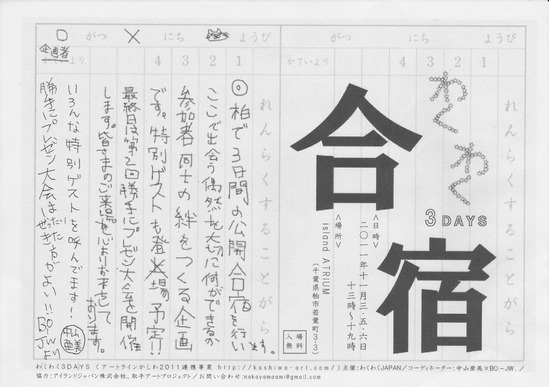 わくわく
3DAYS
合宿
<日時>
二〇一一年十一月三・五・六日
十三時〜十九時
<場所>
island ATRIUM
(千葉県柏市若葉町3-3)
入場無料
かていより
4 3 2 1
れんらくすることがら
□ がつ × にち ようび
企画者より
4 3 2 1
れんらくすることがら
◎柏で3日間の公開合宿を行います。
ここで出会う偶然を大切に何ができるか
参加者同士の絆をつくる企画
です。特別ゲストも登場予定!!
最終日は第2回勝手にプレゼン大会を開催
します。皆さまのご来場を心よりお待ちして
おります。
いろんな特別ゲストを呼んでます!!
勝手にプレゼン大会は
わくわく3DAYS(アートラインかしわ2011連携事業 http://kashiwa-art.com/)主催:わくわくJAPAN/コーディネーター:中山亜美×BO-JW.
協力:アイランドジャパン株式会社、取手アートプロジェクト/お問い合わせ:nakayamaami@gmail.com